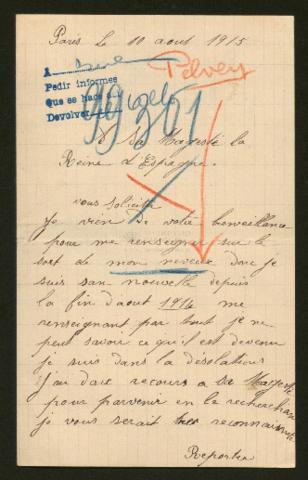 Paris Le 10 aout 1915
Pelvey
A
Pedir informes
Que se hace
Devolver
99361
A Sa Magesté la
Reine d'Espagne.
vous solicite
je vien de votre bienveillance
pour me renseigner sur le
sort de mon neveux donc je
suis san nouvelle depuis
la fin d'aout 1914 me
renseignant par tout je ne
peut savoir ce qu'il est devenu
je suis dans la désolation
j'ai dare recours a Sa Magesté
pour parvenir en le recherchan
je vous serait tres reconnaissante
Reporter